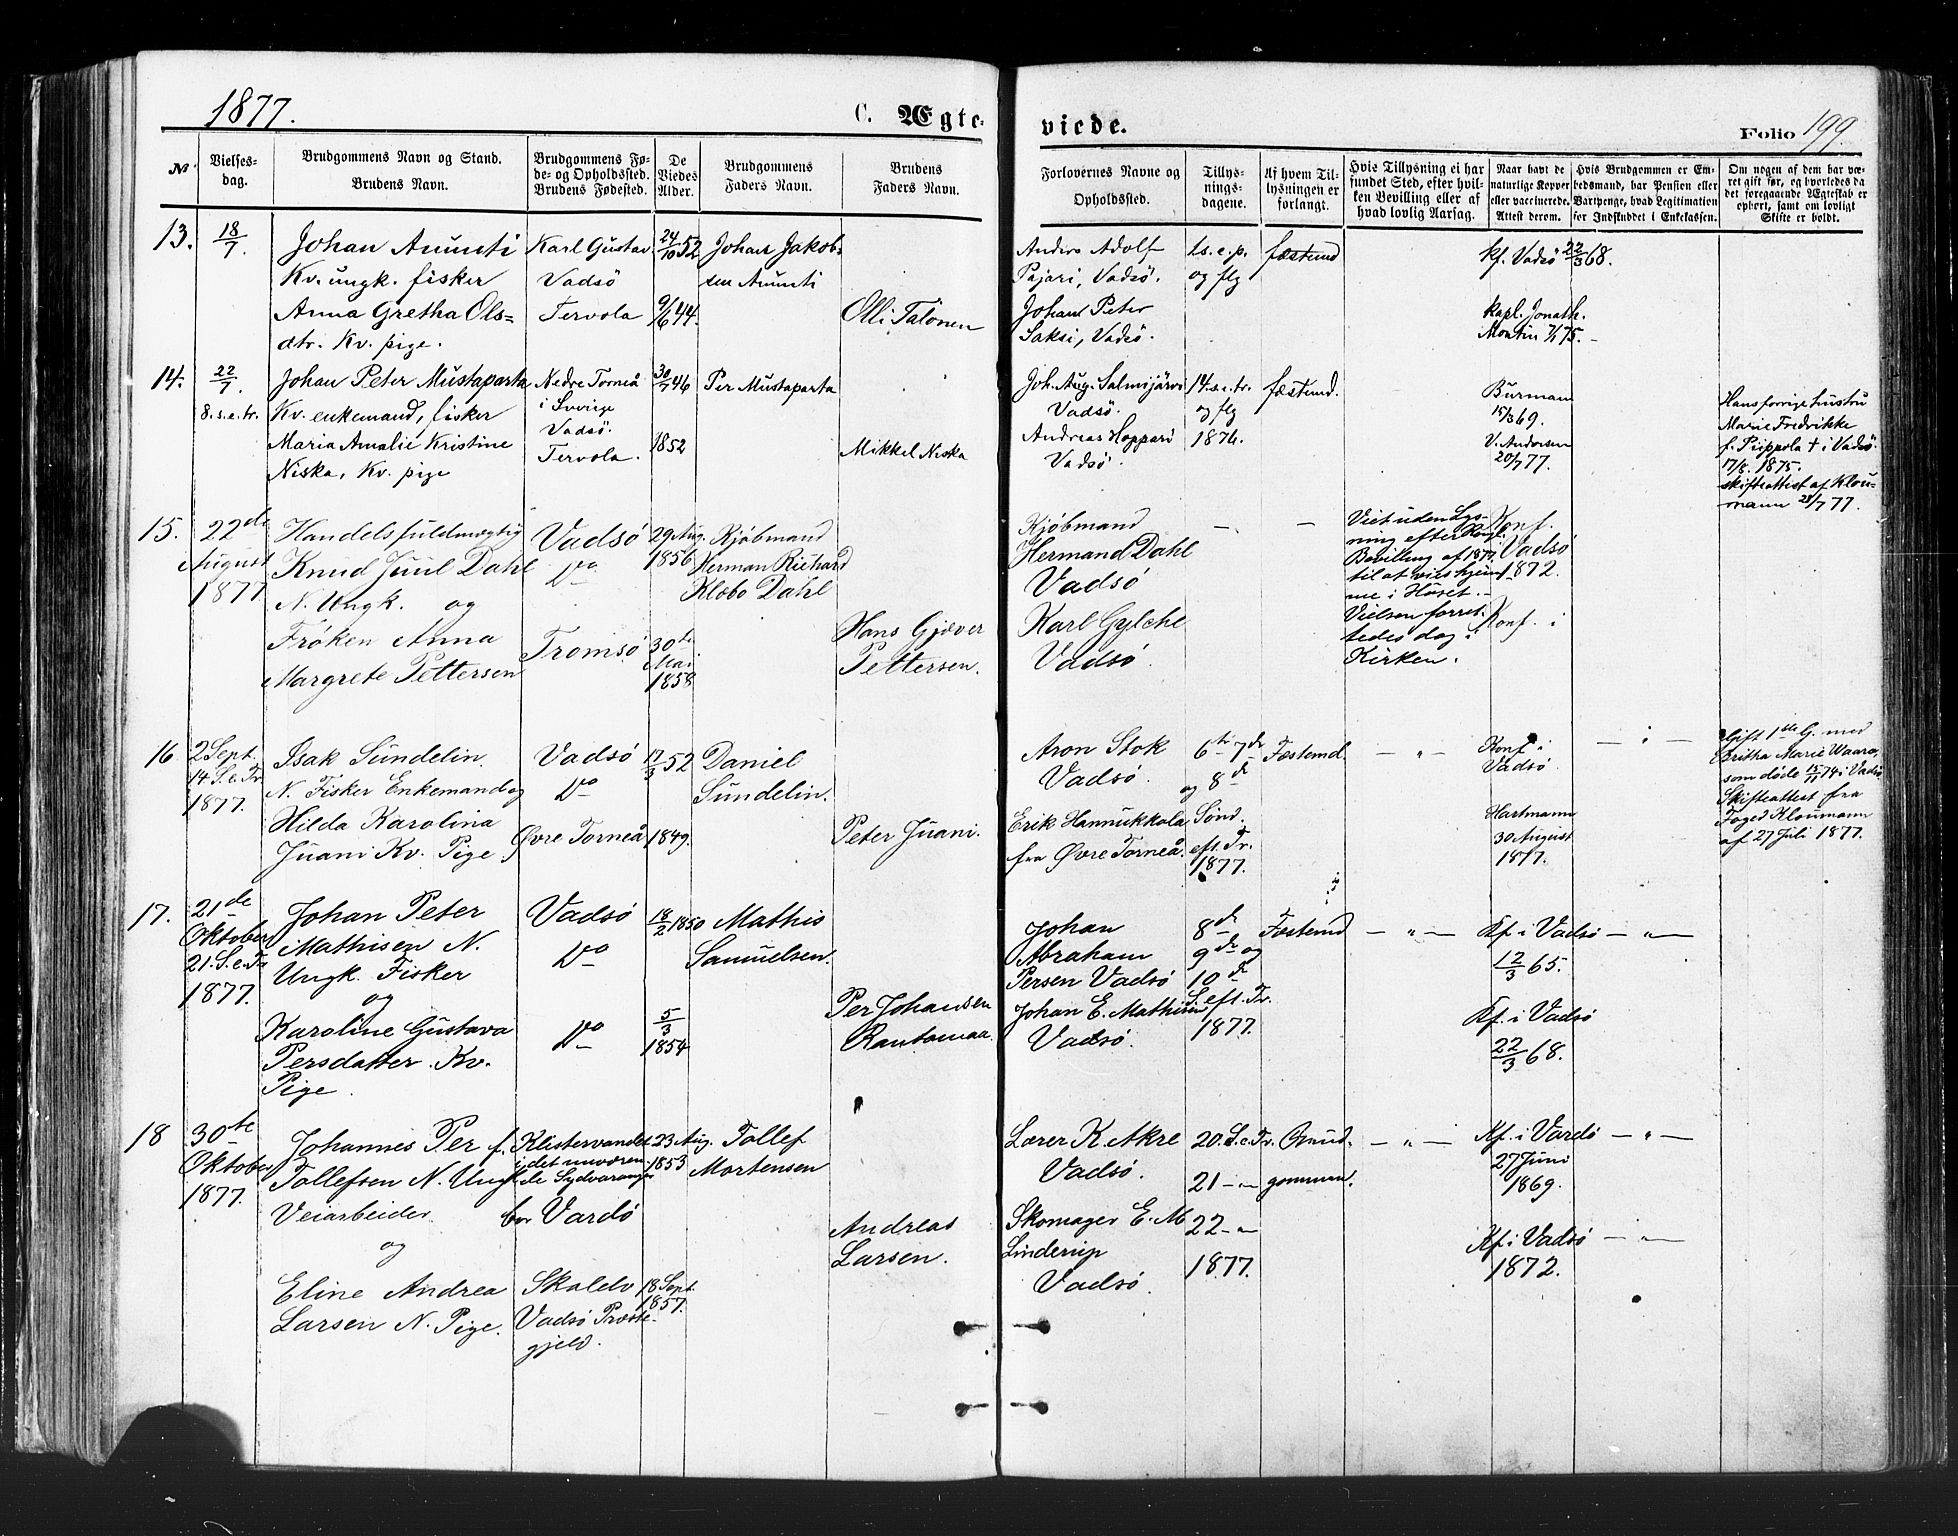 1877.
C. Ægteviede.
Folio 199.
№
Vielsesdag.
Brudgommens Navn og Stand.
Brudens Navn.
Brudgommens Føde- og Opholdssted.
Brudens Fødested.
De Viedes Alder.
Brudgommens Faders Navn.
Brudens Faders Navn.
Forlovernes Navne og Opholdssted.
Tillysningsdagene.
Af hvem Tillysningen er forlangt.
Hvis Tillysning ei har fundet Sted, efter hvilken Bevilling eller af hvad lovlig Aarsag.
Naar havt de naturlige Kopper eller vaccinerede. Attest derom.
Hvis Brudgommen er Embedsmand, bar Pension eller Vartpenge, hvad Legitimation for Indskuddet i Enkekassen.
Om nogen af dem har været gift før, og hvorledes da det foregaaende Ægteskab er ophørt, samt om lovligt Skifte er holdt.
13.
18/7.
Johan Anunti
Kv. ungk. fisker
Anna Gretha Ols=
dtr. Kv. pige.
Karl Gustav
Vadsö
Tervola
24/10 52
9/6 44.
Johan Jakob-
sen Anunti
Olli Talonen
Anders Adolf
Pajari, Vadsö.
Johan Peter
Saksi, Vadsö.
1 s. e. p.
og flg
fæstemd
kf. Vadsö 22/3 68.
kapl. Jonath.
Montin 7/1 75.
14.
22/7.
8. s. e. tr.
Johan Peter Mustaparta
Kv. enkemand, fisker
Maria Amalie Kristine
Niska, Kv. pige
Nedre Torneå
i Sverige
Vadsö.
Tervola.
30/7 46
1852
Per Mustaparta
Mikkel Niska
Joh. Aug. Salmijärvi
Vadsö.
Andreas Hoppari
Vadsö.
14. s. e. tr.
og flg
1876.
fæstemd.
Burman
15/3 69.
V. Andersen
20/7 77.
Hans forrige hustru
Marie Fredrikke
f. Piippola † i Vadsö
17/8. 1875.
skifteattest af Klou-
mann 28/7 77.
15.
22de
August
1877
Handelsfuldmægtig
Knud Juul Dahl
N. Ungk. og
Frøken Anna
Margrete Pettersen
Vadsö
Do
Tromsö
29 Aug.
1856
30te
Mai
1858
Kjøbmand
Herman Richard
Klæbo Dahl
Hans Gjæver
Pettersen.
Kjøbmand
Hermand Dahl
Vadsö
Karl Gylche
Vadsö.
Viet uden Lys-
ning efter Kongl.
Bevilling af 1877
til at vies hjem-
me i Huset. -
Vielsen forret-
tedes dog i
Kirken.
Konf.
Vadsö
1872.
Konf. i
16
2 Sept.
14 S. e. Tr.
1877.
Isak Sundelin
N. Fisker Enkemand og
Hilda Karolina
Juani Kv. Pige
Vadsö
Do
Øvre Torneå
17/3 52
1849.
Daniel
Sundelin.
Peter Juani.
Aron Stok
Vadsö.
Erik Hannukkala
fra Øvre Torneå.
6te 7de
og 8de
Sønd.
eft. Tr.
1877.
Fæstemd.
Konf i
Vadsö.
Hartmann
30 August
1877.
Gift 1ste G. med
Britha Marie Waara,
som døde 15/11 74 i Vadsö
Skifteattest fra
Foged Kloumann
af 27 Juli 1877.
17.
21de
Oktober
21. S. e. Tr.
1877.
Johan Peter
Mathisen N.
Ungk. Fisker
og
Karoline Gustava
Persdatter. Kv.
Pige.
Vadsö
Do
Do
18/2 1850
5/3
1854
Mathis
Samuelsen.
Per Johansen
Rantamaa.
Johan
Abraham
Persen Vadsö
Johan E. Mathisen
Vadsö.
8de
9de og
10de
S. eft. Tr.
1877.
Fæstemd
Kf. i Vadsö
12/3 65.
Kf. i Vadsö
22/3 68.
18
30te
Oktober
1877.
Johannes Per
Tollefsen N. Ungk.
Veiarbeider.
og
Eline Andrea
Larsen N. Pige.
f. Klistervandet
i det nuværen-
de Sydvaranger
bor Vardö
Skaldv
Vadsö Præste-
gjeld.
23 Aug.
1853
18 Sept.
1857.
Tollef
Mortensen
Andreas
Larsen.
Lærer K. Akre
Vadsö.
Skomager E. M
Linderup
Vadsö.
20. S. e. Tr.
21 - " -
22 - "
1877.
Brud-
gommen.
Kf. i Vardö
27 Juni
1869.
Kf. i Vadsö
1872.